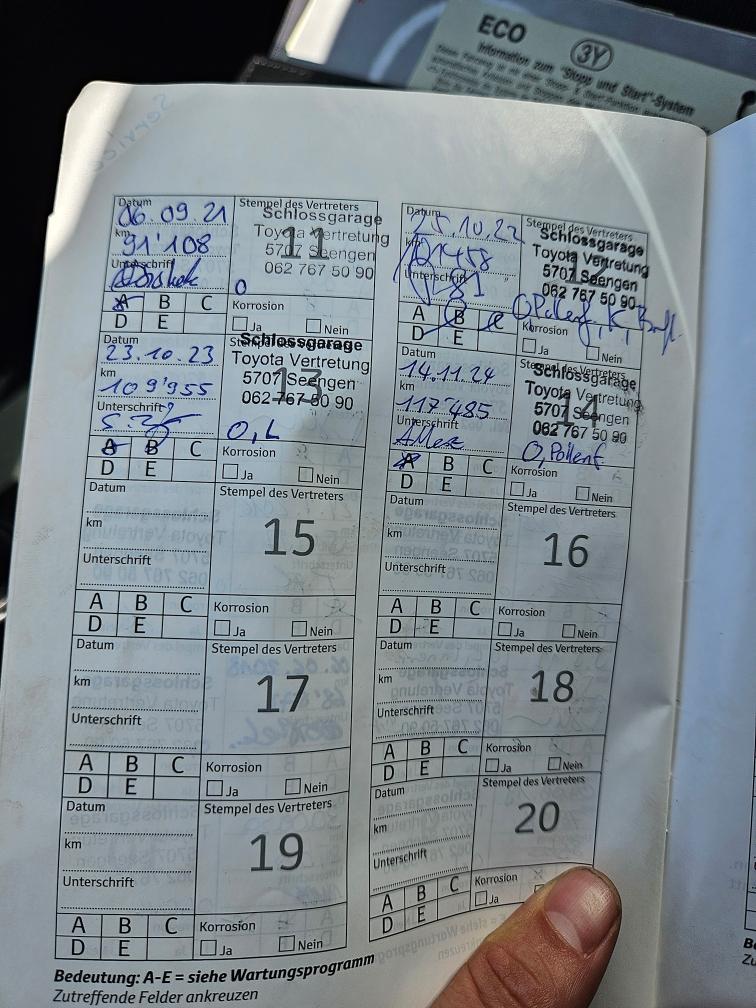 ECO
3Y
Information zum "Stopp und Start"-System
Service
Datum
06.09.21
km
91'108
Unterschrift
Stempel des Vertreters
11
Schlossgarage
Toyota Vertretung
5707 Seengen
062 767 50 90
O
A B C
D E
Korrosion
Ja Nein
Datum
25.10.22
km
101'458
Unterschrift
Stempel des Vertreters
Schlossgarage
Toyota Vertretung
5707 Seengen
062 767 50 90
A B C
D E
Korrosion
Ja Nein
Datum
23.10.23
km
109'955
Unterschrift
Stempel des Vertreters
13
Schlossgarage
Toyota Vertretung
5707 Seengen
062 767 50 90
O, L
A B C
D E
Korrosion
Ja Nein
Datum
14.11.24
km
117'485
Unterschrift
Stempel des Vertreters
14
Schlossgarage
Toyota Vertretung
5707 Seengen
062 767 50 90
O, Pollenf
A B C
D E
Korrosion
Ja Nein
Datum
km
Unterschrift
Stempel des Vertreters
15
A B C
D E
Korrosion
Ja Nein
Datum
km
Unterschrift
Stempel des Vertreters
16
A B C
D E
Korrosion
Ja Nein
Datum
km
Unterschrift
Stempel des Vertreters
17
A B C
D E
Korrosion
Ja Nein
Datum
km
Unterschrift
Stempel des Vertreters
18
A B C
D E
Korrosion
Ja Nein
Datum
km
Unterschrift
Stempel des Vertreters
19
A B C
D E
Korrosion
Ja Nein
Datum
km
Unterschrift
Stempel des Vertreters
20
A B C
D E
Korrosion
Bedeutung: A-E = siehe Wartungsprogramm
Zutreffende Felder ankreuzen